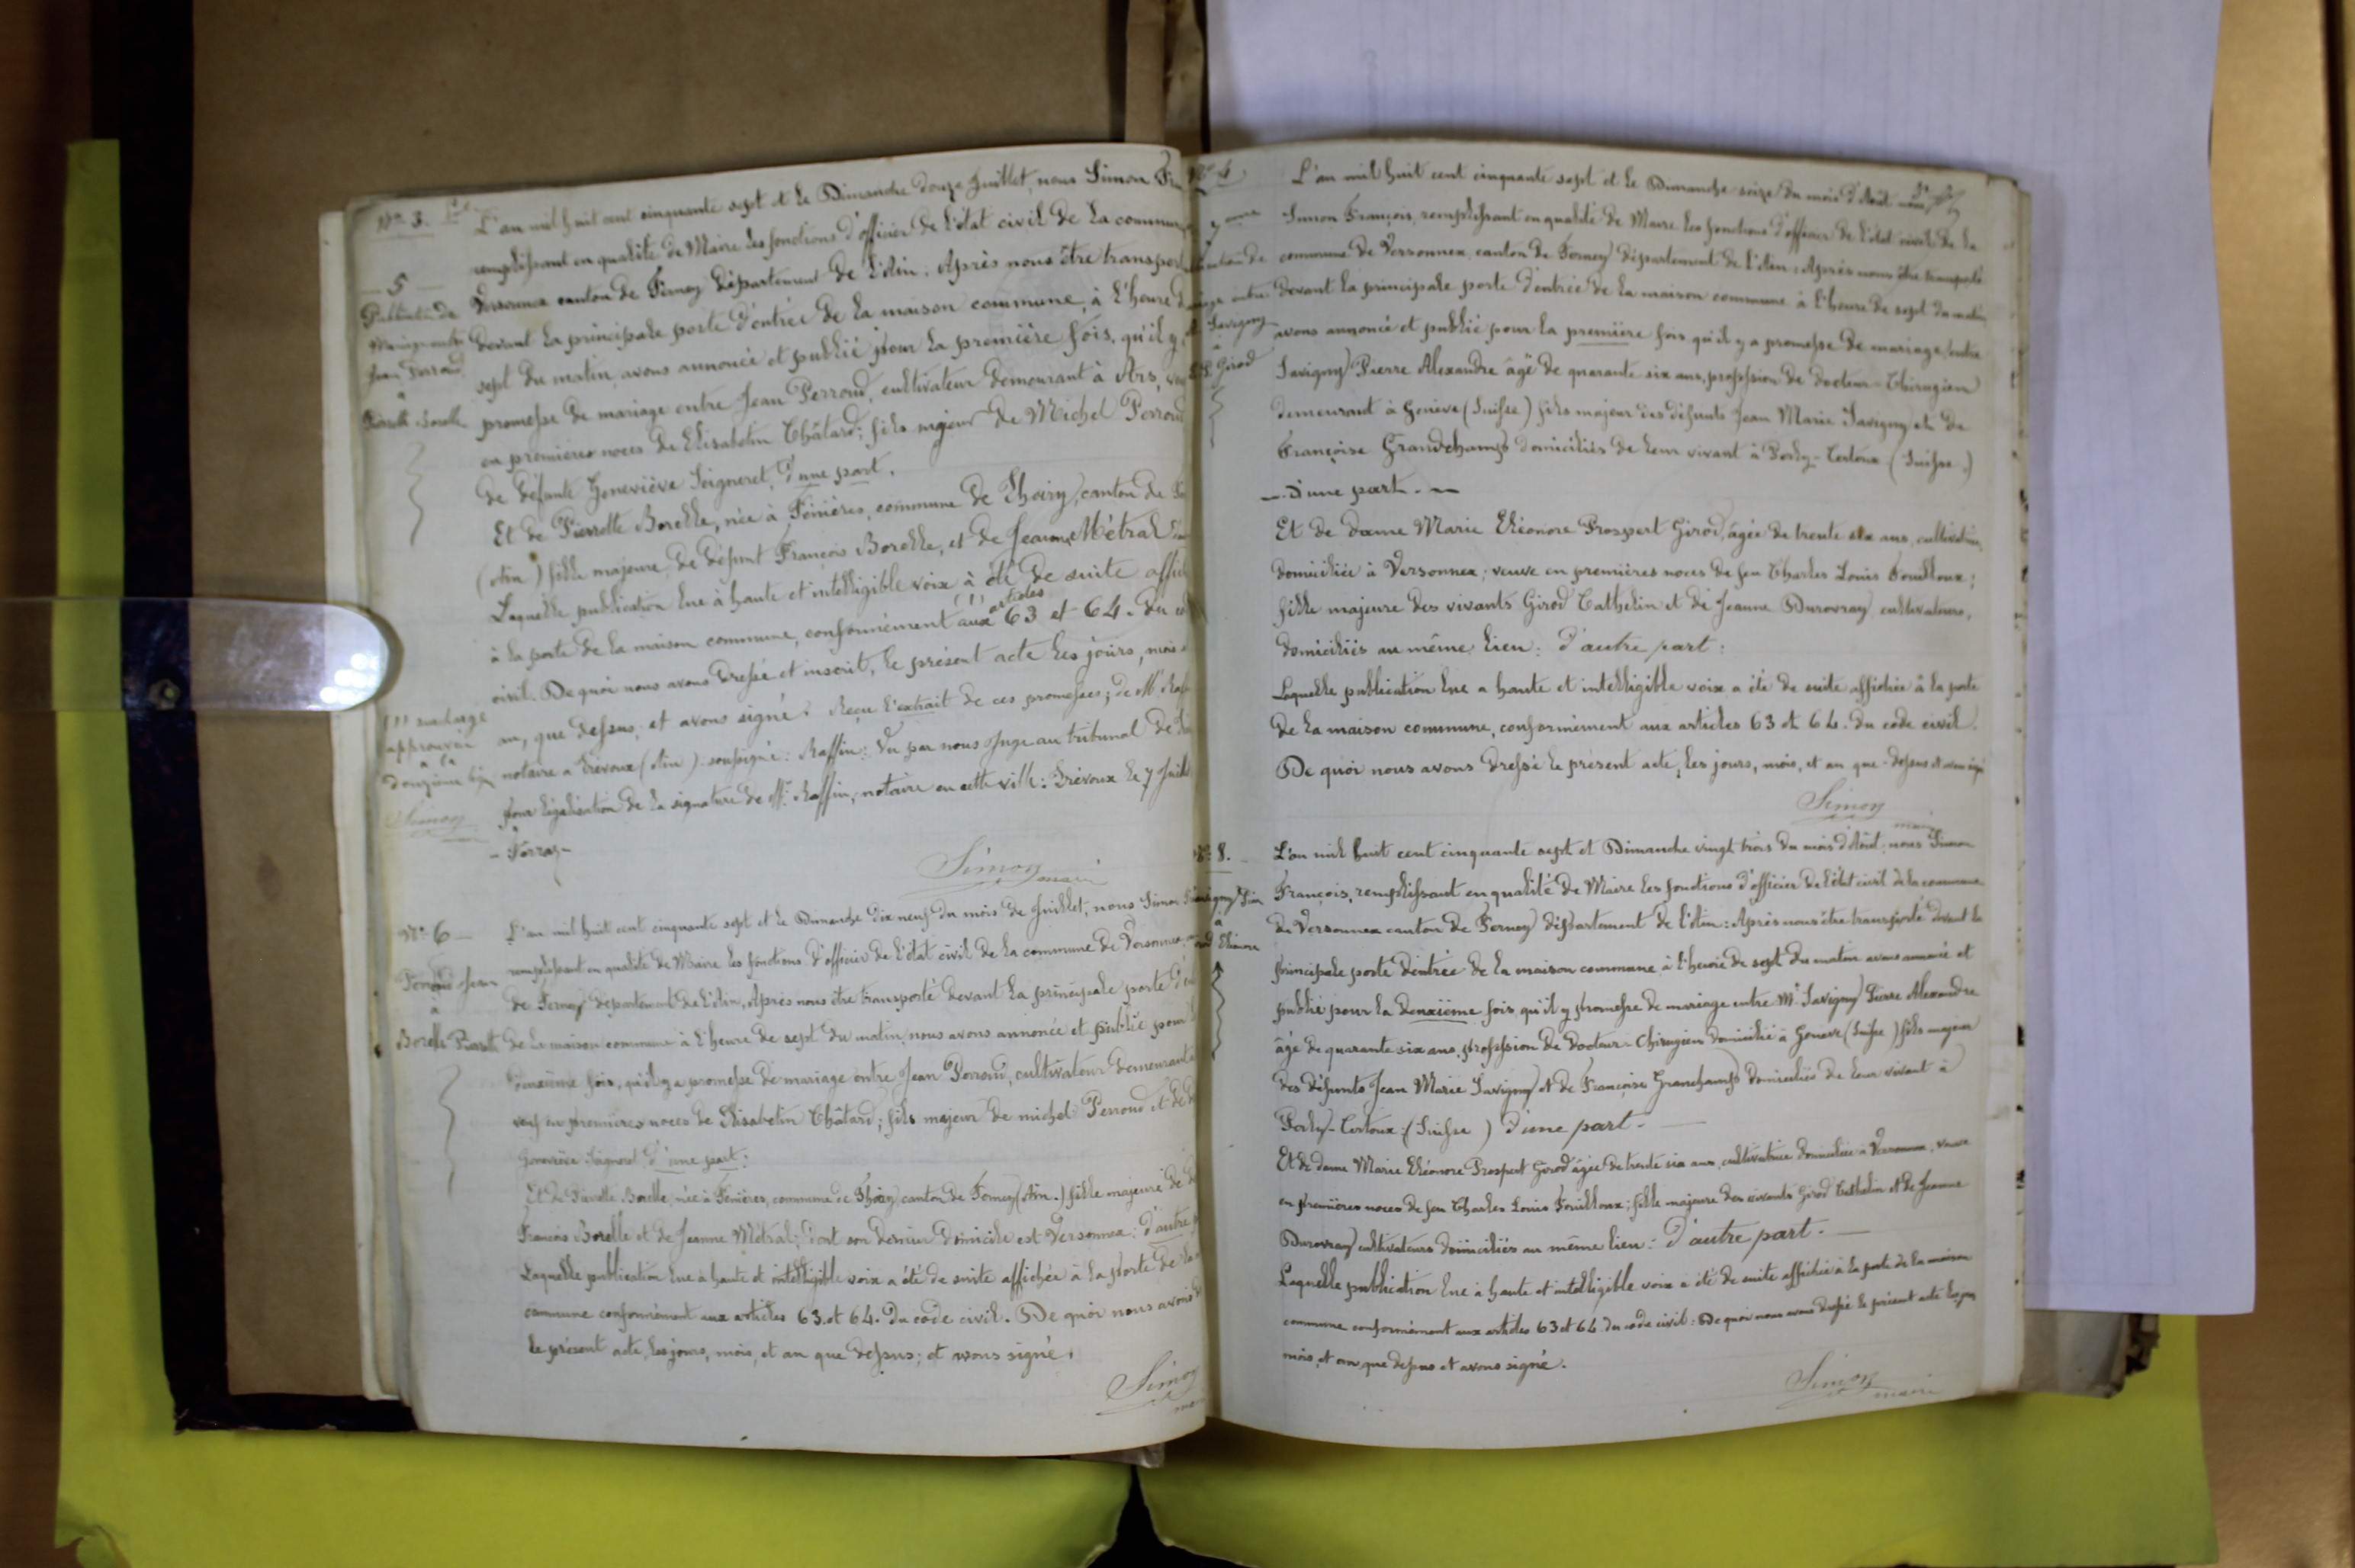 Nº 3.
5
Publication de
Mariage entre
Jean Perroud
à
Pierrette Borelle
L'an mil huit cent cinquante sept et le Dimanche douze Juillet, nous Simon
remplissant en qualité de Maire les fonctions d'officier de l'état civil de la commune
Versonnex canton de Ferney département de l'Ain. Après nous être transporté
devant la principale porte d'entrée de la maison commune, à l'heure de
sept du matin, avons annoncé et publié pour la première fois, qu'il y
promesse de mariage entre Jean Perroud, cultivateur demeurant à Ars,
en premières noces de Elisabetin Châtard; fils majeur de Michel Perroud
de défunte Geneviève Seigneret, d'une part.
Et de Pierrette Borelle, née à Fénières, commune de Thoiry, canton de
(Ain) fille majeure de défunt François Borelle, et de Jeanne Métral
Laquelle publication lue à haute et intelligible voix, à été de suite
à la porte de la maison commune, conformément aux articles 63 et 64. du
civil. De quoi nous avons dressé et inscrit, le présent acte les jours, mois
an, que dessus; et avons signé. Reçu l'extrait de ces promesses; de Mr
notaire à Trévoux (Ain) soussigné: Raffin: Vu par nous Juge au tribunal de
pour légalisation de la signature de Mr Raffin, notaire en cette ville: Trévoux le 7
(1) surcharge
approuvée
à la
douzième
Simon
Simon
maire
Nº 6
Perroud Jean
à
Borelle Pierrette
L'an mil huit cent cinquante sept et le Dimanche dix neuf du mois de Juillet, nous Simon
remplissant en qualité de Maire les fonctions d'officier de l'état civil de la commune de Versonnex
de Ferney département de l'Ain, Après nous être transporté devant la principale porte
de la maison commune à l'heure de sept du matin, nous avons annoncé et publié pour
deuxième fois, qu'il y a promesse de mariage entre Jean Perroud, cultivateur demeurant
veuf en premières noces de Elisabetin Châtard; fils majeur de michel Perroud et de
Geneviève Seigneret d'une part:
Et de Pierrette Borelle, née à Fénières, commune de Thoiry, canton de Ferney (Ain.) fille majeure de
François Borelle et de Jeanne Métral; dont son dernier domicile est Versonnex: d'autre
Laquelle publication lue à haute et intelligible voix a été de suite affichée à la porte de la
commune conformément aux articles 63 et 64. du code civil. De quoi nous avons
le présent acte, les jours, mois, et an que dessus; et avons signé.
Simon
Savigny
à
Girod
L'an mil huit cent cinquante sept et le Dimanche seize du mois d'Août nous
Simon François, remplissant en qualité de Maire les fonctions d'officier de l'état civil de la
commune de Versonnex, canton de Ferney département de l'Ain: Après nous être transporté
devant la principale porte d'entrée de la maison commune à l'heure de sept du matin,
avons annoncé et publié pour la première fois qu'il y a promesse de mariage entre
Savigny Pierre Alexandre âgé de quarante six ans, profession de docteur-Chirugien
demeurant à Genève (Suisse) fils majeur des défunts Jean Marie Savigny et de
Françoise Grandchamps domiciliés de leur vivant à Perly-Certoux (Suisse)
d'une part.
Et de dame Marie Eléonore Prospert Girod, âgée de trente six ans, cultivatrice,
domiciliée à Versonnex; veuve en premières noces de feu Charles Louis Fouilloux;
fille majeure des vivants Girod Cathelin et de Jeanne Durovray cultivateurs,
domiciliés au même lieu: d'autre part:
Laquelle publication lue a haute et intelligible voix a été de suite affichée à la porte
de la maison commune, conformément aux articles 63 et 64. du code civil.
De quoi nous avons dressé le présent acte, les jours, mois, et an que dessus et avons signé
Simon
maire
Nº 8.
Girod Eléonore
L'an mil huit cent cinquante sept et Dimanche vingt trois du mois d'Août, nous Simon
François, remplissant en qualité de Maire les fonctions d'officier de l'état civil de la commune
de Versonnex canton de Ferney département de l'Ain: Après nous être transporté devant la
principale porte d'entrée de la maison commune à l'heure de sept du matin avons annoncé et
publié pour la deuxième fois, qu'il y promesse de mariage entre Mr Savigny Pierre Alexandre
âgé de quarante six ans, profession de Docteur-Chirugien domicilié à Genève (Suisse) fils majeur
des défunts Jean Marie Savigny et de Françoise Granchamps domiciliés de leur vivant à
Perly-Certoux: (Suisse) d'une part.
Et de dame Marie Eléonore Prospert Girod âgée de trente six ans, cultivatrice domiciliée à Versonnex, veuve
en premières noces de feu Charles Louis Fouilloux; fille majeure des vivants Girod Cathelin et de Jeanne
Durovray cultivateurs domiciliés au même lieu: d'autre part.
Laquelle publication lue à haute et intelligible voix a été de suite affichée à la porte de la maison
commune conformément aux articles 63 et 64 du code civil: De quoi nous avons dressé le présent acte les jours
mois, et an que dessus et avons signé.
Simon
maire